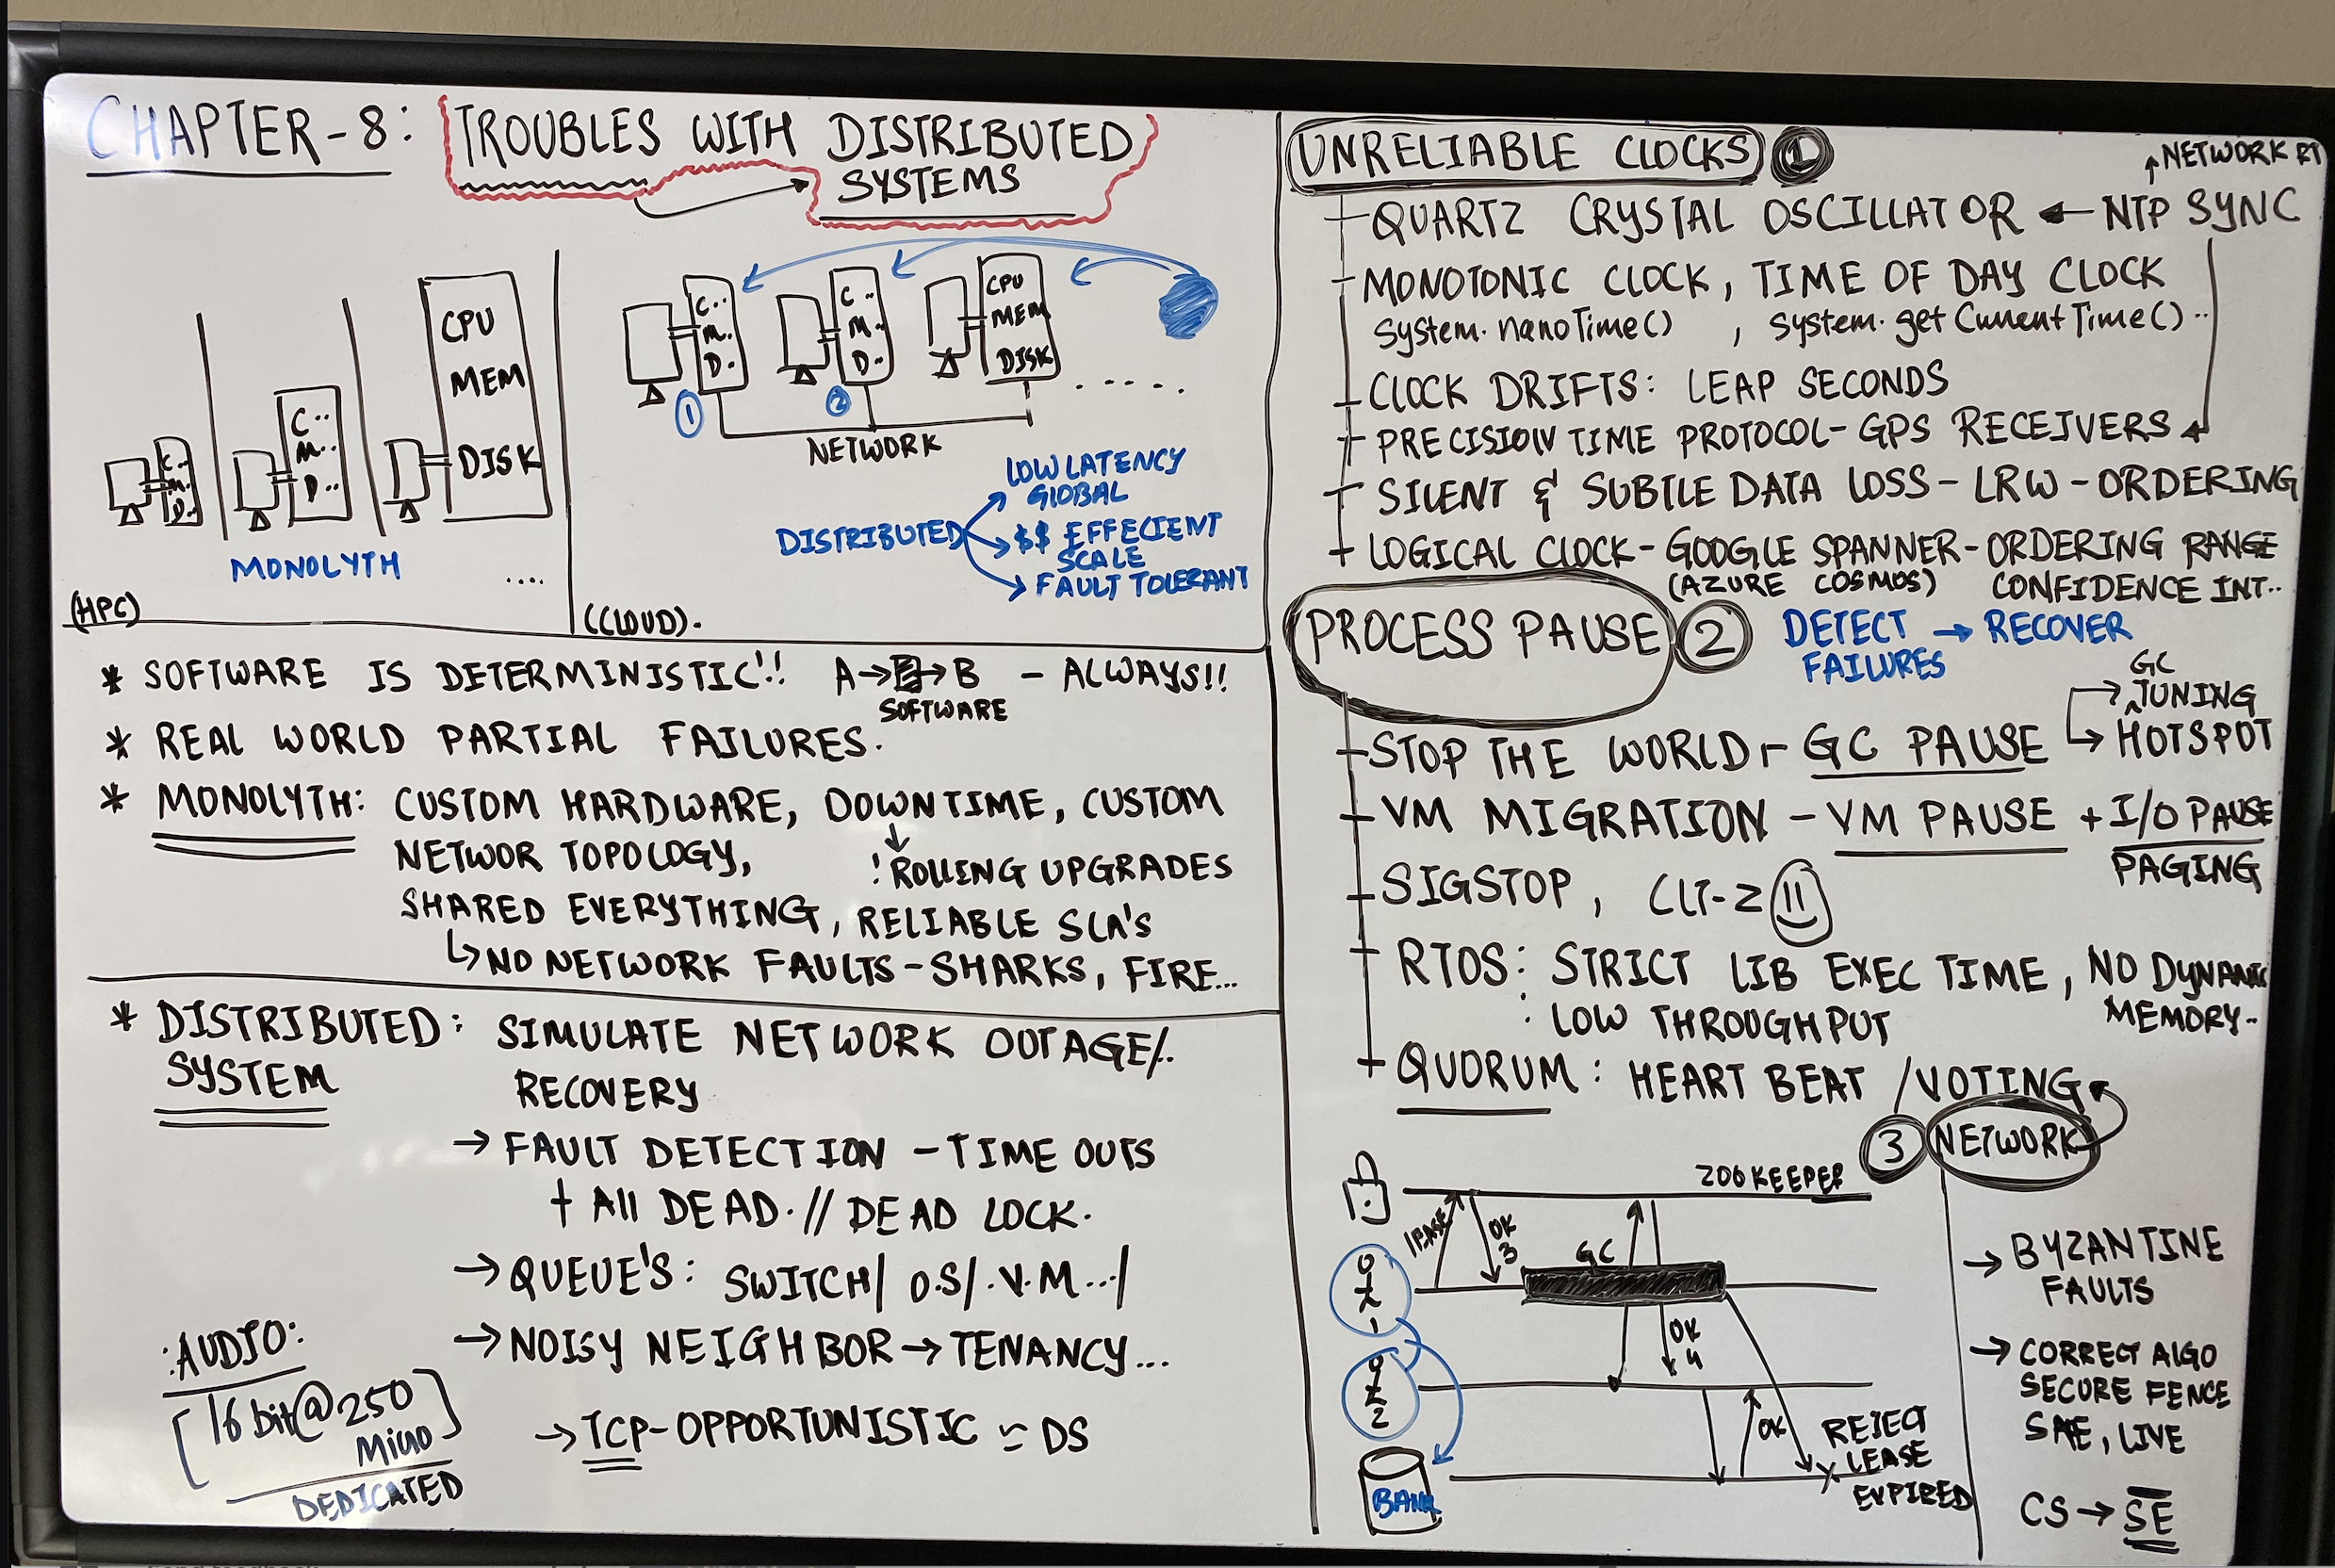 CHAPTER-8: TROUBLES WITH DISTRIBUTED
SYSTEMS
C..
M.
D.
C..
M..
D..
CPU
MEM
DISK
MONOLYTH
....
(HPC)
C..
M.
D.
C..
M..
D..
CPU
MEM
DISK
.....
1
2
NETWORK
DISTRIBUTED
LOW LATENCY
GLOBAL
$$ EFFECIENT
SCALE
FAULT TOLERANT
(CLOUD).
* SOFTWARE IS DETERMINISTIC!! A→ →B - ALWAYS!!
SOFTWARE
* REAL WORLD PARTIAL FAILURES.
* MONOLYTH: CUSTOM HARDWARE, DOWNTIME, CUSTOM
NETWOR TOPOLOGY, ↓
! ROLLING UPGRADES
SHARED EVERYTHING, RELIABLE SLA'S
↳ NO NETWORK FAULTS - SHARKS, FIRE...
* DISTRIBUTED: SIMULATE NETWORK OUTAGE/.
SYSTEM
RECOVERY
→ FAULT DETECTION - TIME OUTS
+ All DEAD. // DEAD LOCK.
→ QUEUE'S: SWITCH/ O.S/.V.M.../
→ NOISY NEIGHBOR → TENANCY...
→ TCP-OPPORTUNISTIC ≃ DS
:AUDIO:
[16 bit@250
DEDICATED
UNRELIABLE CLOCKS 1
↑ NETWORK RT
QUARTZ CRYSTAL OSCILLATOR ← NTP SYNC
MONOTONIC CLOCK, TIME OF DAY CLOCK
System.nanoTime() , System.getCurrentTime()..
CLOCK DRIFTS: LEAP SECONDS
PRECISION TIME PROTOCOL- GPS RECEIVERS
SILENT & SUBTLE DATA LOSS - LRW - ORDERING
LOGICAL CLOCK - GOOGLE SPANNER - ORDERING RANGE
(AZURE COSMOS) CONFIDENCE INT..
PROCESS PAUSE 2
DETECT → RECOVER
FAILURES
GC
TUNING
STOP THE WORLD - GC PAUSE ↳ HOTSPOT
VM MIGRATION - VM PAUSE + I/O PAUSE
PAGING
SIGSTOP, CLT-Z
RTOS: STRICT LIB EXEC TIME, NO DYNAMIC
MEMORY..
: LOW THROUGHPUT
QUORUM: HEART BEAT /VOTING
3 NETWORK
ZOOKEEPER
LEASE
OK
3
GC
1
OK
4
2
OK
REJECT
LEASE
EXPIRED
BANK
→ BYZANTINE
FAULTS
→ CORRECT ALGO
SECURE FENCE
SAFE, LIVE
CS → SE